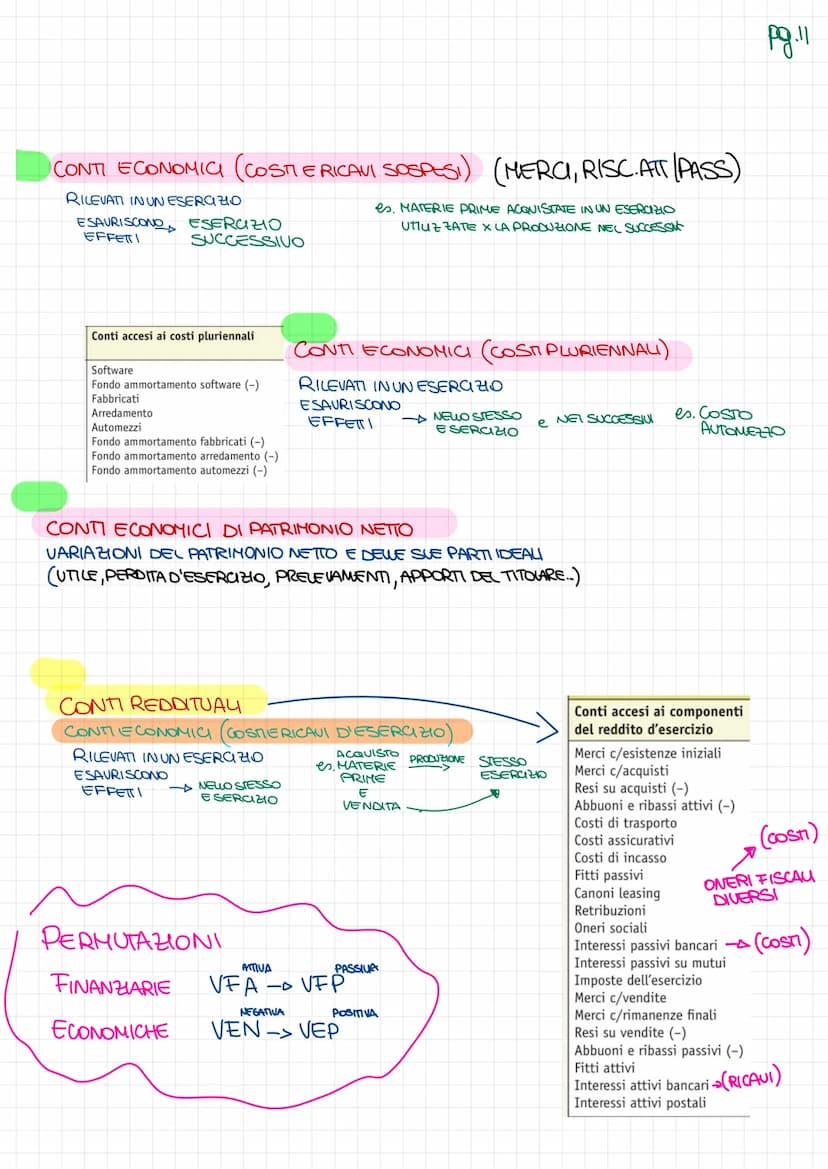 pg.11
CONTI ECONOMICI (COSTI E RICAVI SOSPESI) (MERCI, RISC.ATT/PASS)
RILEVATI IN UN ESERCIZIO
ESAURISCONO
EFFETTI → ESERCIZIO
SUCCESSIVO
es. MATERIE PRIME ACQUISTATE IN UN ESERCIZIO
UTILIZZATE X LA PRODUZIONE NEL SUCCESSIVO
Conti accesi ai costi pluriennali
Software
Fondo ammortamento software (–)
Fabbricati
Arredamento
Automezzi
Fondo ammortamento fabbricati (–)
Fondo ammortamento arredamento (–)
Fondo ammortamento automezzi (–)
CONTI ECONOMICI (COSTI PLURIENNALI)
RILEVATI IN UN ESERCIZIO
ESAURISCONO
EFFETTI → NELLO STESSO
ESERCIZIO
e NEI SUCCESSIVI
es. COSTO
AUTOMEZZO
CONTI ECONOMICI DI PATRIMONIO NETTO
VARIAZIONI DEL PATRIMONIO NETTO E DELLE SUE PARTI IDEALI
(UTILE, PERDITA D'ESERCIZIO, PRELEVAMENTI, APPORTI DEL TITOLARE..)
CONTI REDDITUALI
CONTI ECONOMICI (COSTI E RICAVI D'ESERCIZIO)
RILEVATI IN UN ESERCIZIO
ESAURISCONO
EFFETTI → NELLO STESSO
ESERCIZIO
ACQUISTO
es. MATERIE
PRIME
E
VENDITA
PRODUZIONE
STESSO
ESERCIZIO
Conti accesi ai componenti
del reddito d'esercizio
Merci c/esistenze iniziali
Merci c/acquisti
Resi su acquisti (–)
Abbuoni e ribassi attivi (–)
Costi di trasporto
Costi assicurativi
Costi di incasso
Fitti passivi
Canoni leasing
Retribuzioni
Oneri sociali
Interessi passivi bancari → (COSTI)
Interessi passivi su mutui
Imposte dell'esercizio
Merci c/vendite
Merci c/rimanenze finali
Resi su vendite (–)
Abbuoni e ribassi passivi (–)
Fitti attivi
Interessi attivi bancari → (RICAVI)
Interessi attivi postali
(COSTI)
ONERI FISCALI
DIVERSI
PERMUTAZIONI
ATTIVA PASSIVA
FINANZIARIE VFA → VFP
NEGATIVA POSITIVA
ECONOMICHE VEN –> VEP